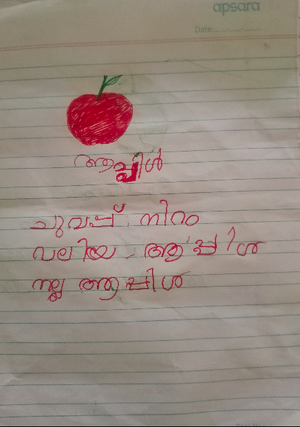 apsara
Date
ആപ്പിൾ
ചുവപ്പ് നിറം
വലിയ ആപ്പിൾ
നല്ല ആപ്പിൾ